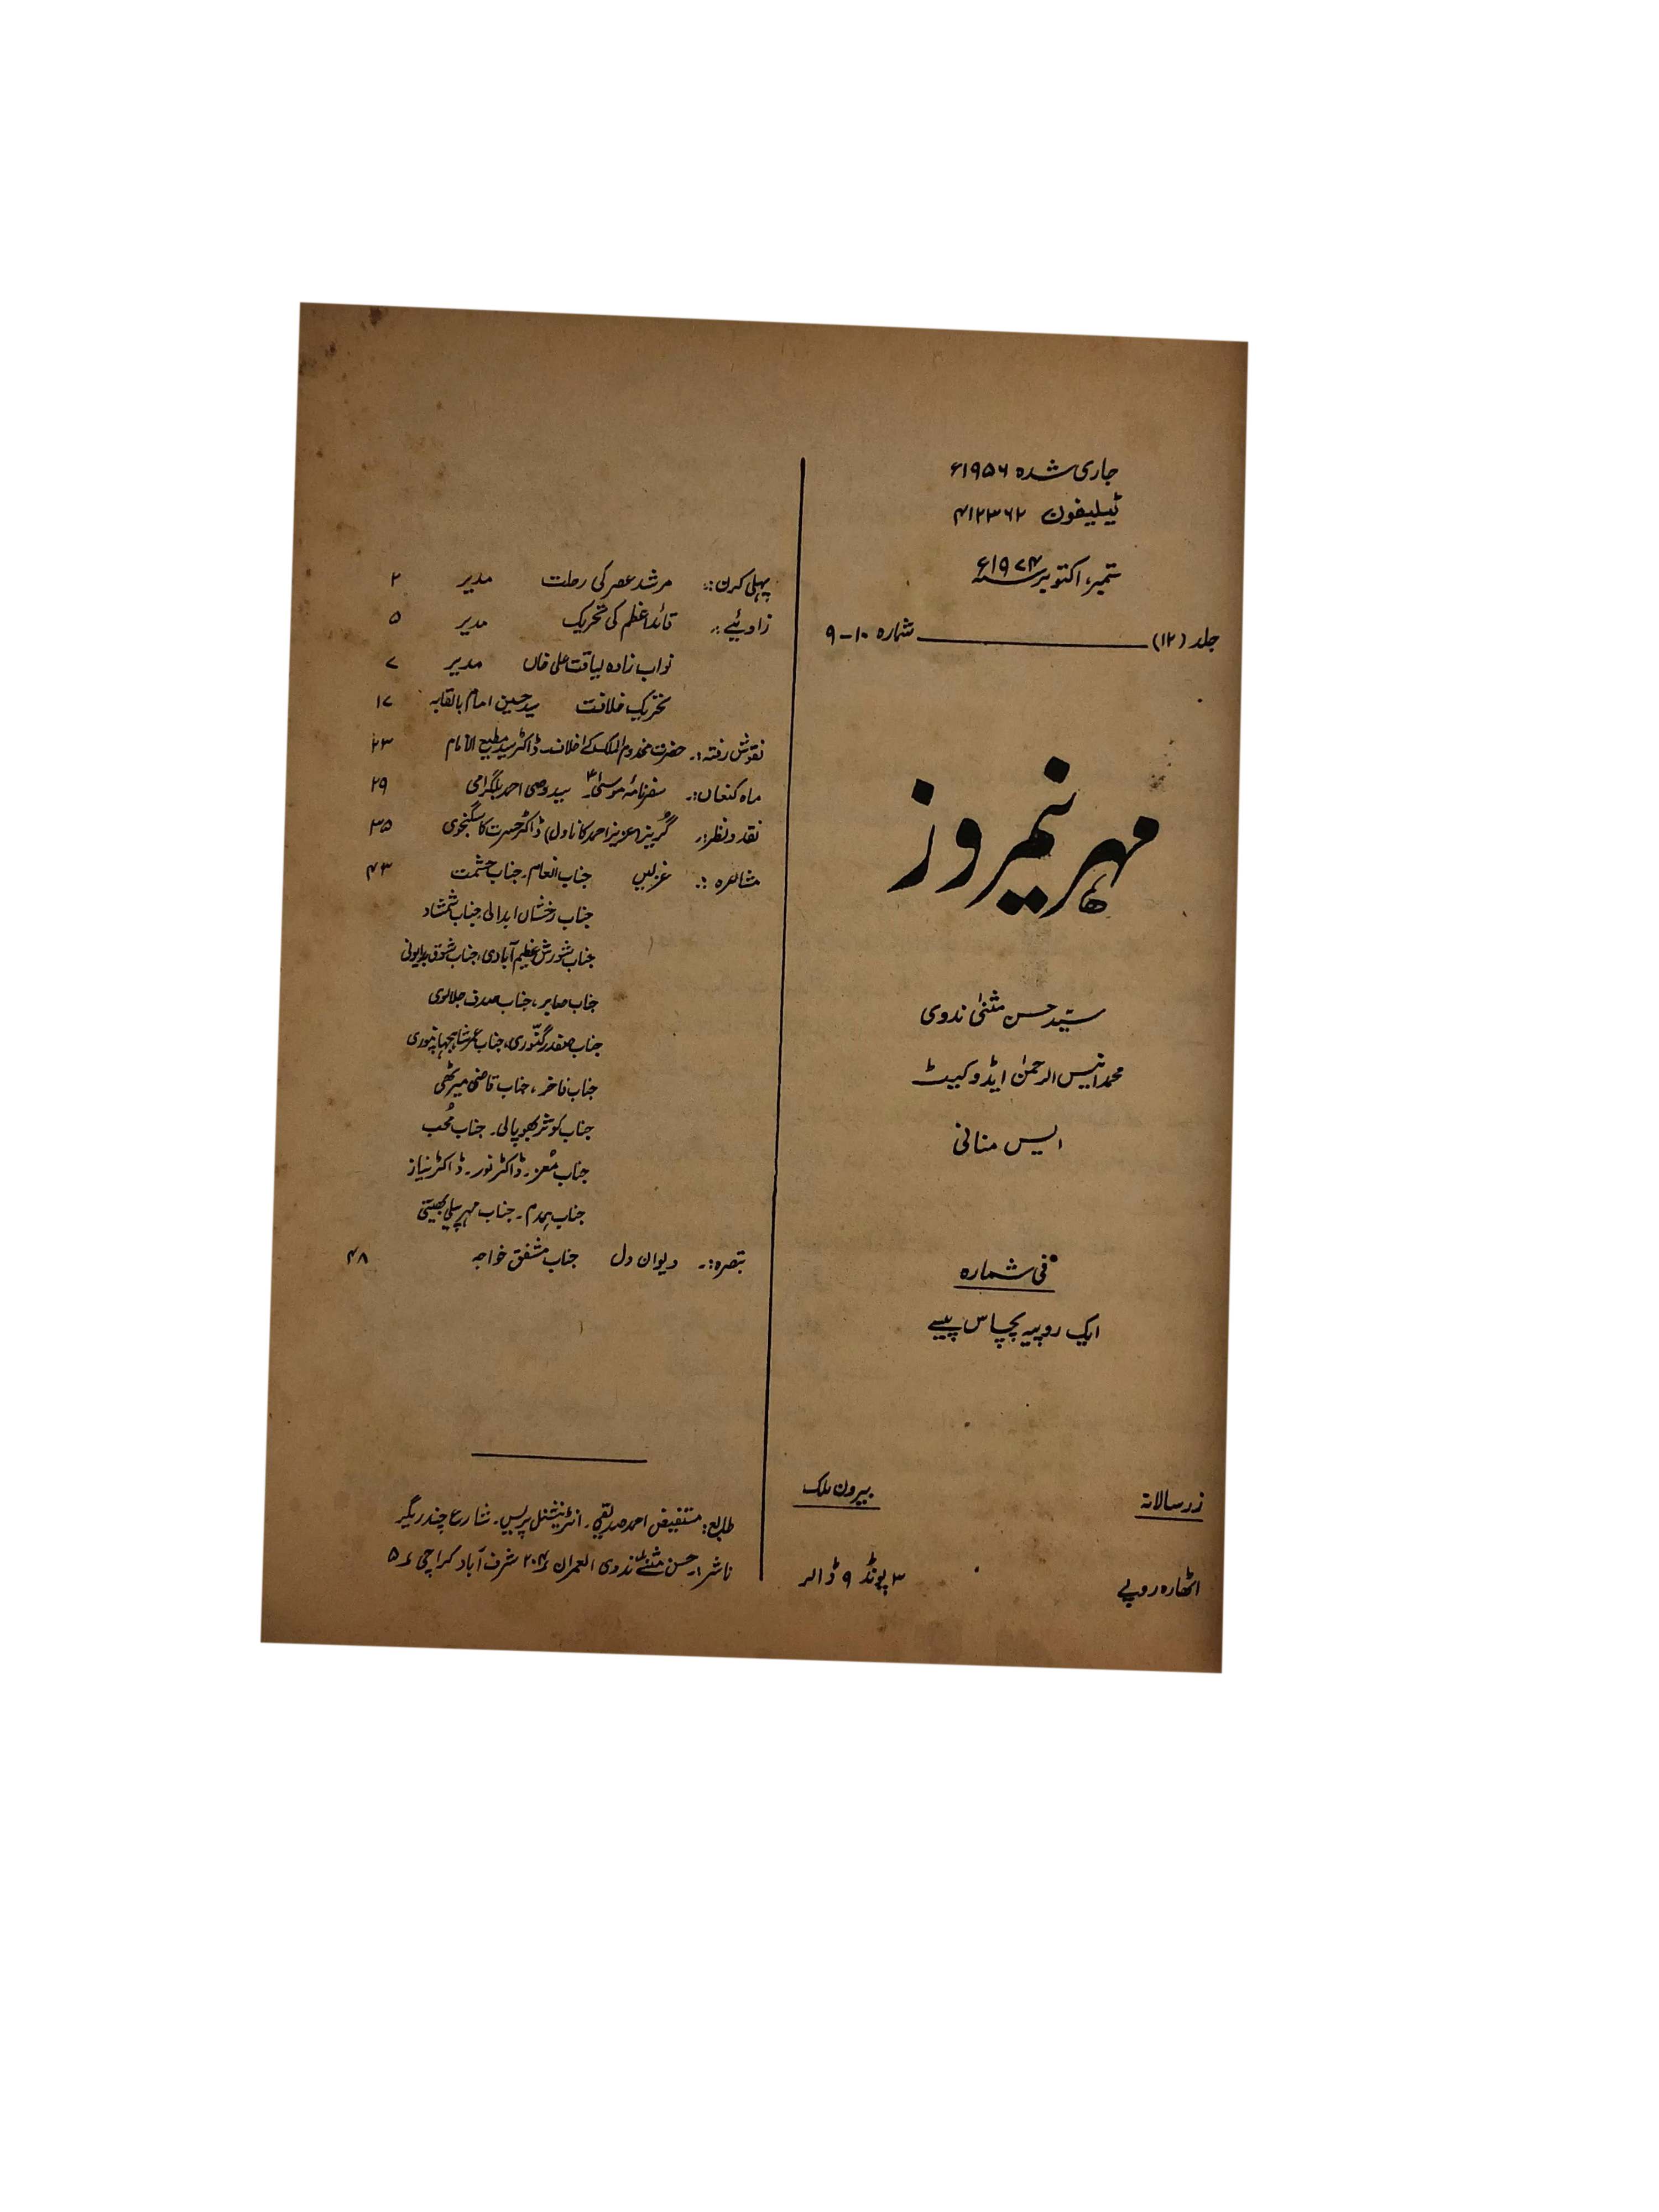 جاری شدہ ۱۹۵۶ء
ٹیلیفون ۴۱۲۳۶۲
ستمبر، اکتوبر سنہ ۱۹۷۴ء
جلد (۱۲) ——— شمارہ ۱۰-۹
مہر نیمروز
سیّد حسن مثنیٰ ندوی
محمد انیس الرحمٰن ایڈوکیٹ
ایس منانی
فی شمارہ
ایک روپیہ پچاس پیسے
زر سالانہ
بیرون ملک
اٹھارہ روپے
۳ پونڈ ۹ ڈالر
پہلی کرن :۔ مرشد عصر کی رحلت مدیر ۲
زاویئے :۔ قائد اعظم کی تحریک مدیر ۵
نواب زادہ لیاقت علی خاں مدیر ۷
تحریک خلافت سید حسین امام بالقابہ ۱۷
نقوش رفتہ :۔ حضرت مخدوم الملک کے اخلاف ڈاکٹر سید مطیع الامام ۲۳
ماہ کنعاں :۔ سفرنامۂ موسیٰؑ سید وصی احمد بلگرامی ۲۹
نقد و نظر :۔ گریز (عزیز احمد کا ناول) ڈاکٹر حسرت کاسگنجوی ۳۵
مشاعرہ :۔ غزلیں جناب انعام۔ جناب حشمت ۴۳
جناب رخشاں ابدالی جناب شمشاد
جناب شورش عظیم آبادی، جناب شوق بدایونی
جناب صابر، جناب صدف جلالوی
جناب صفدر گنّوری، جناب عمر شاہجہانپوری
جناب فاخر، جناب قاضی میرٹھی
جناب کوثر بھوپالی۔ جناب مُحب
جناب مُعز۔ ڈاکٹر نور۔ ڈاکٹر نیاز
جناب ہمدم۔ جناب مہر پیلی بھیتی
تبصرہ :۔ دیوان دل جناب مشفق خواجہ ۴۸
طابع: مستفیض احمد صدیقی۔ انٹرنیشنل پریس۔ شارع چندریگر
ناشر :۔ حسن مثنیٰ ندوی العمران ۲۰۴؍ شرف آباد کراچی ؍۵